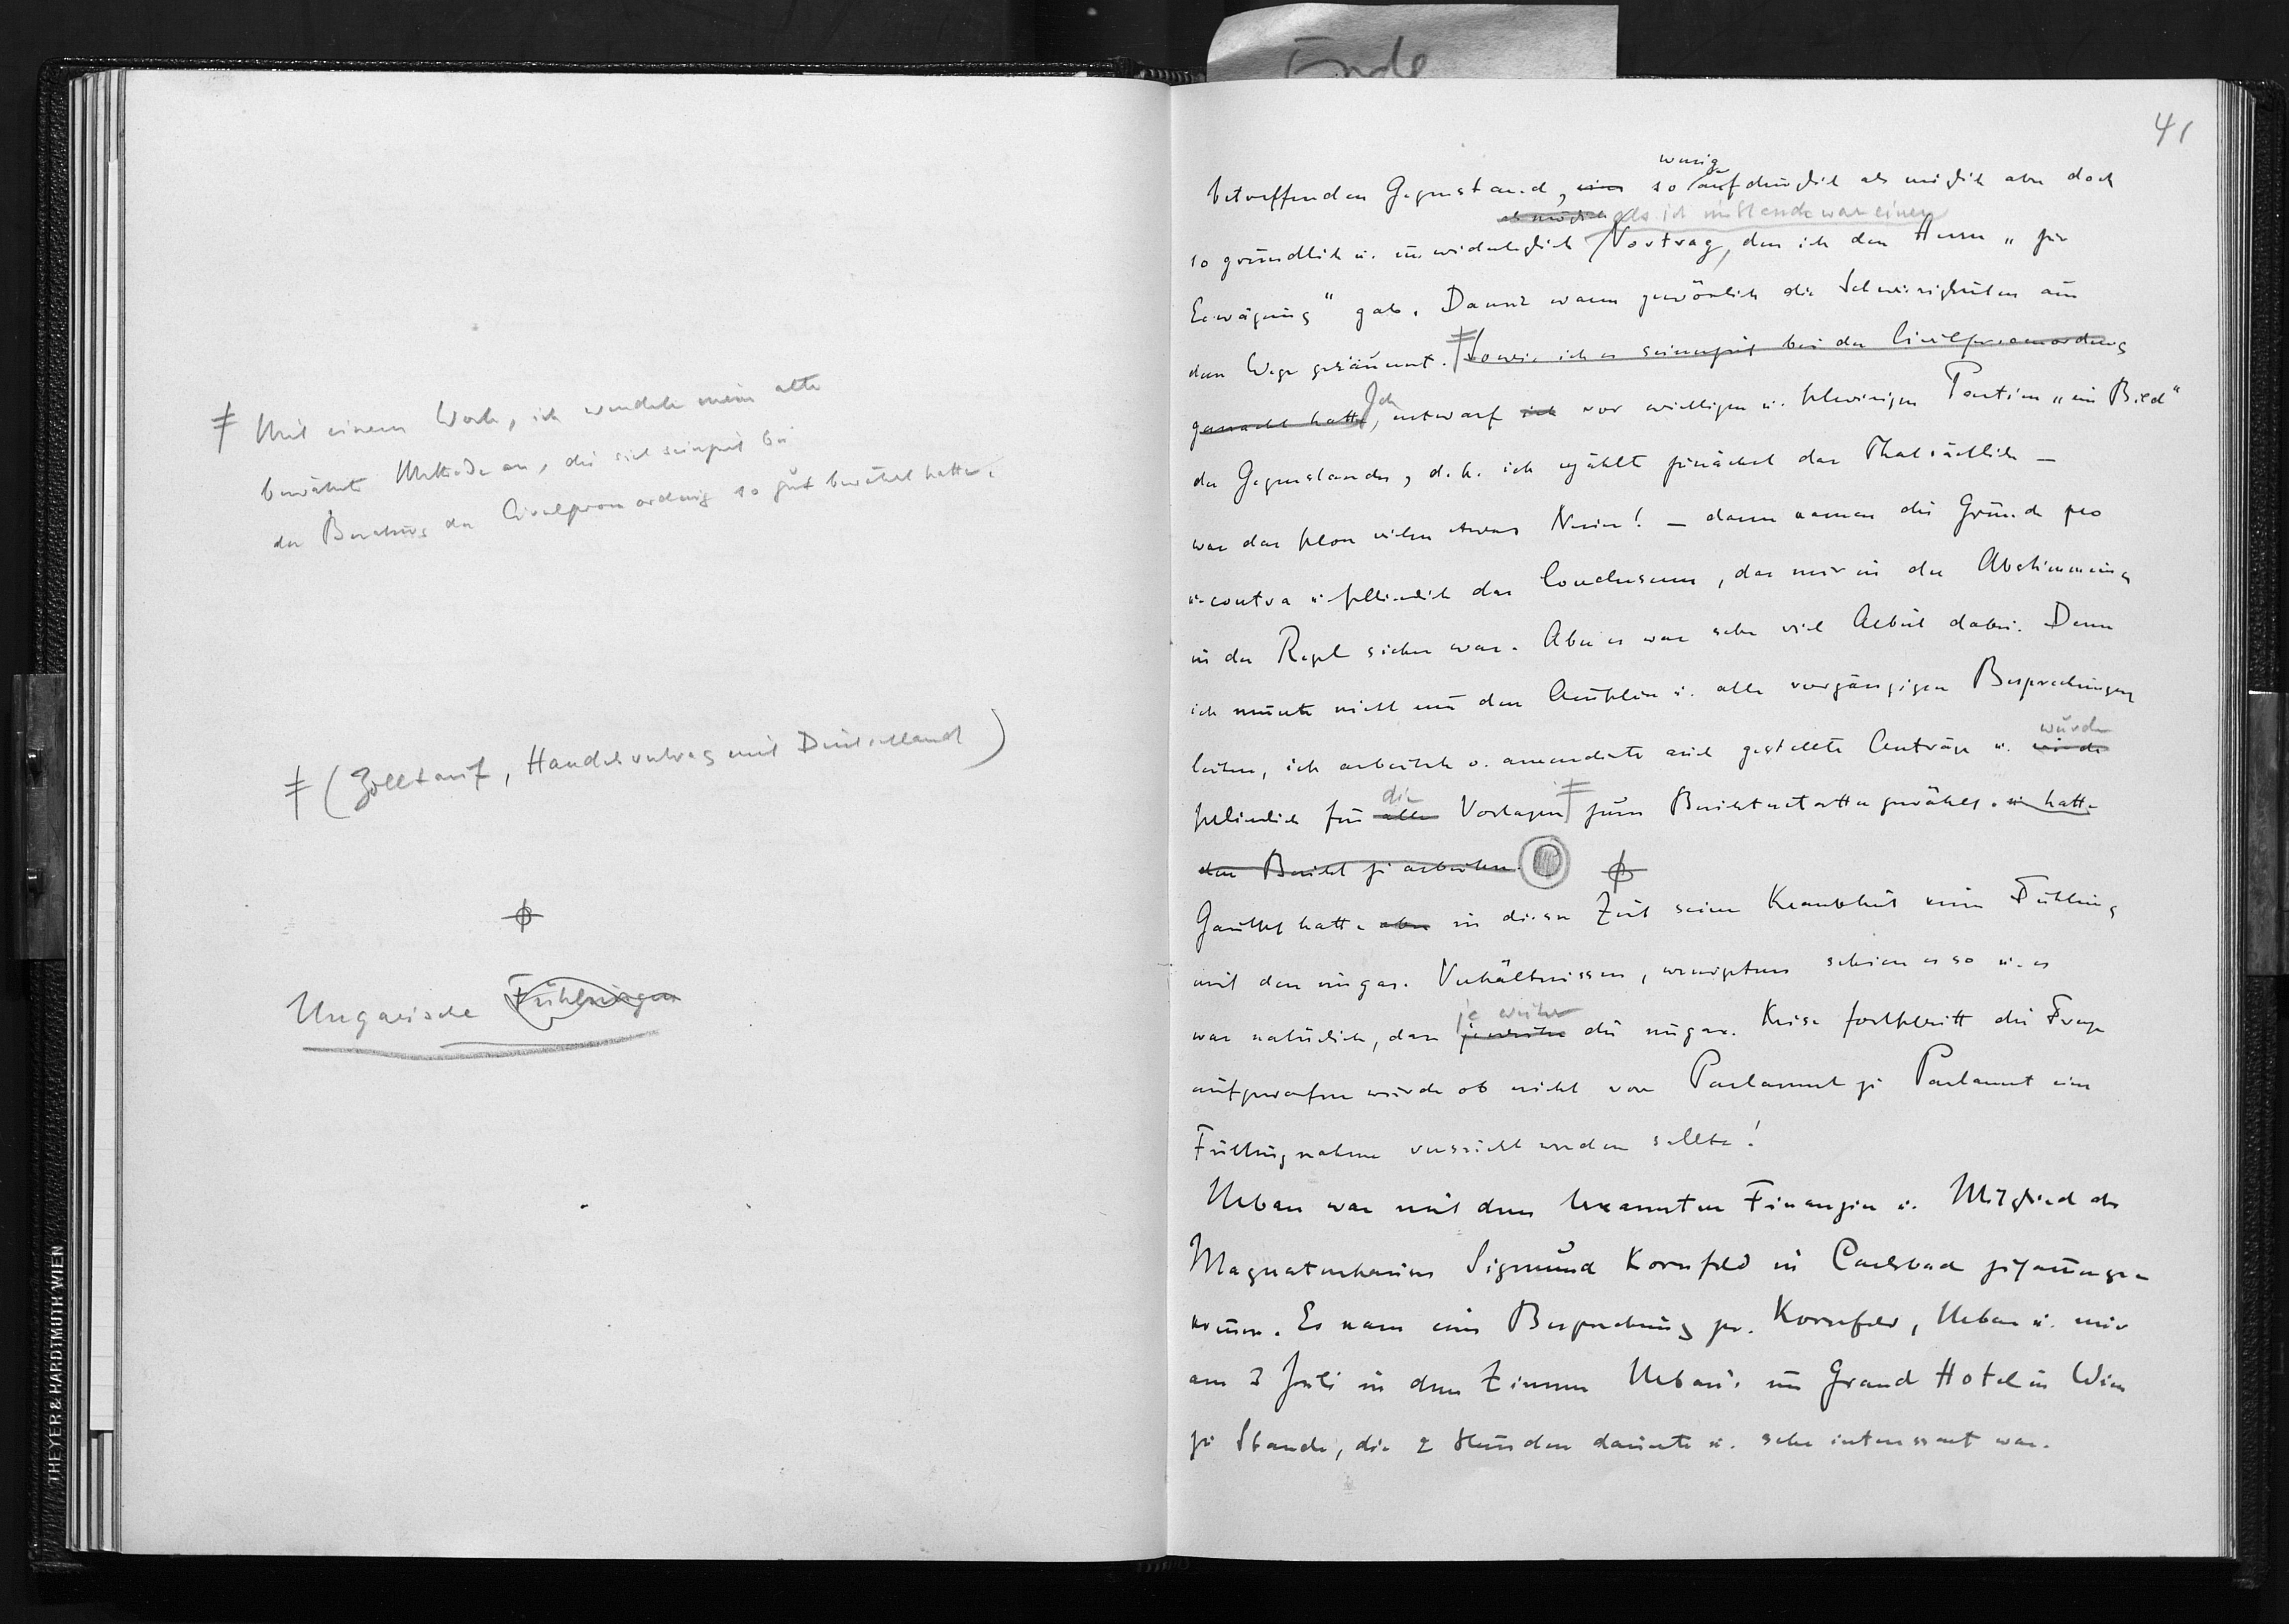 Ende
≠ Mit einem Worte, ich wendete meine alte
bewährte Methode an, die sich seinerzeit bei
der Beratung der Civilprozessordnung so gut bewährt hatte.
≠ (Zolltarif, Handelsvertrag mit Deutschland)
Ungarische Fühlungen
THEYER & HARDTMUTH WIEN
41
wenig
betreffenden Gegenstand, so aufdringlich als möglich aber doch
als möglich als ich imstande war einen
so gründlich u. unwiderleglich Vortrag, den ich den Herren „zur
Erwägung" gab. Damit waren gewönlich die Schwierigkeiten aus
dem Wege geräumt. ≠ Sowie ich es seinerzeit bei der Civilprocessordnung
gemacht hatte, Ich entwarf ich vor wichtigen u. schwierigen Partien „ein Bild"
des Gegenstandes, d.h. ich erzählte zunächst das Thatsächliche —
war das schon vielen etwas Neues! — dann kamen die Gründe pro
u. contra u. schliesslich das Conclusum, das mir in der Abstimmung
in der Regel sicher war. Aber es war sehr viel Arbeit dabei. Denn
ich musste nicht nur den Ausschuss u. alle vorgängigen Besprechungen
wurde
leiten, ich arbeitete u. amendierte auch gestellte Anträge u. wurde
die
schliesslich für alle Vorlagen ≠ zum Berichterstatter gewählt. u. hatte
den Bericht zu arbeiten.
Gautsch hatte aber in dieser Zeit seiner Krankheit keine Fühlung
mit den ungar. Verhältnissen, wenigstens schien es so u. es
je weiter
war natürlich, dass je weiter die ungar. Krise fortschritt die Frage
aufgeworfen wurde ob nicht von Parlament zu Parlament eine
Fühlungnahme versucht werden sollte!
Urban war mit dem bekannten Financier u. Mitglied des
Magnatenhauses Sigmund Kornfeld in Carlsbad zusammenge-
kommen. Es kam eine Besprechung zw. Kornfeld, Urban u. mir
am 3 Juli in dem Zimmer Urbans im Grand Hotel in Wien
zu Stande, die 2 Stunden dauerte u. sehr interessant war.